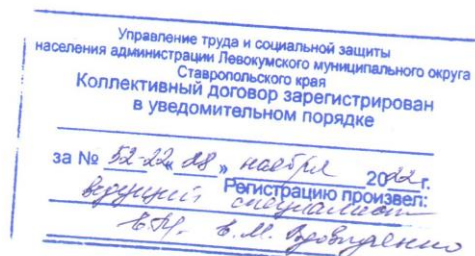 Управление труда и социальной защиты
населения администрации Левокумского муниципального округа
Ставропольского края
Коллективный договор зарегистрирован
в уведомительном порядке
за № 52-22 « 28 » ноября 2022 г.
Регистрацию произвел:
ведущий специалист
Е.М.